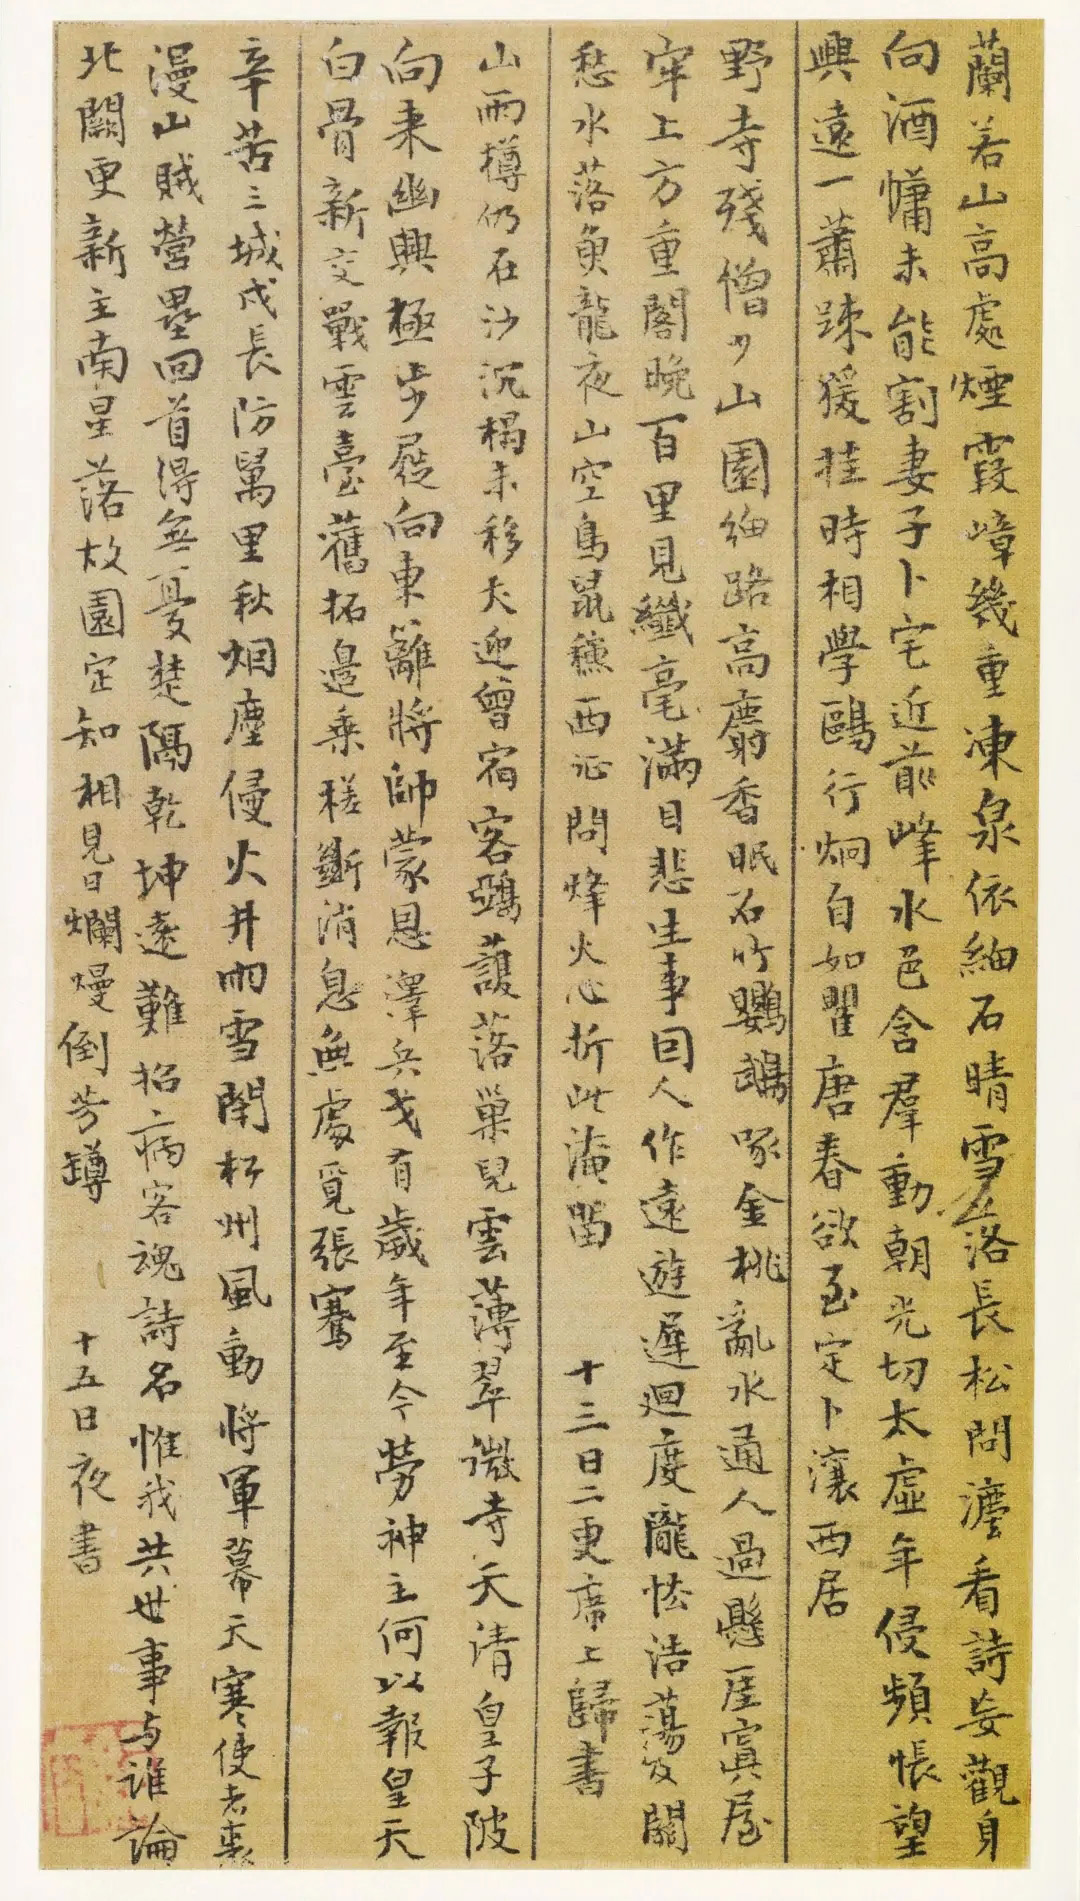 蘭若山高處煙霞嶂幾重凍泉依細石晴雪落長松問灋看詩妄觀身
向酒慵未能割妻子卜宅近前峰水色含羣動朝光切太虛年侵頻悵望
興遠一蕭疎猨挂時相學鷗行炯自如瞿唐春欲至定卜瀼西居
野寺殘僧少山園細路高麝香眠石竹鸚鵡啄金桃亂水通人過懸厓寘屋
牢上方重閣晚百里見纖毫滿目悲生事因人作遠遊遲迴度隴怯浩蕩及關
愁水落魚龍夜山空鳥鼠穐西征問烽火心折此淹留 十三日二更席上歸書
山雨樽仍在沙沉榻未移犬迎曾宿客鵶護落巢兒雲薄翠微寺天清皇子陂
向來幽興極步屧向東籬將帥蒙恩澤兵戈有歲年至今勞神主何以報皇天
白骨新交戰雲臺舊拓邊乘槎斷消息無處覓張騫
辛苦三城戍長防萬里秋烟塵侵火井雨雪閉松州風動將軍幕天寒使者裘
漫山賊營壘回首得無憂楚隔乾坤遠難招病客魂詩名惟我共世事与誰論
北闕更新主南星落故園定知相見日爛熳倒芳罇 十五日夜書